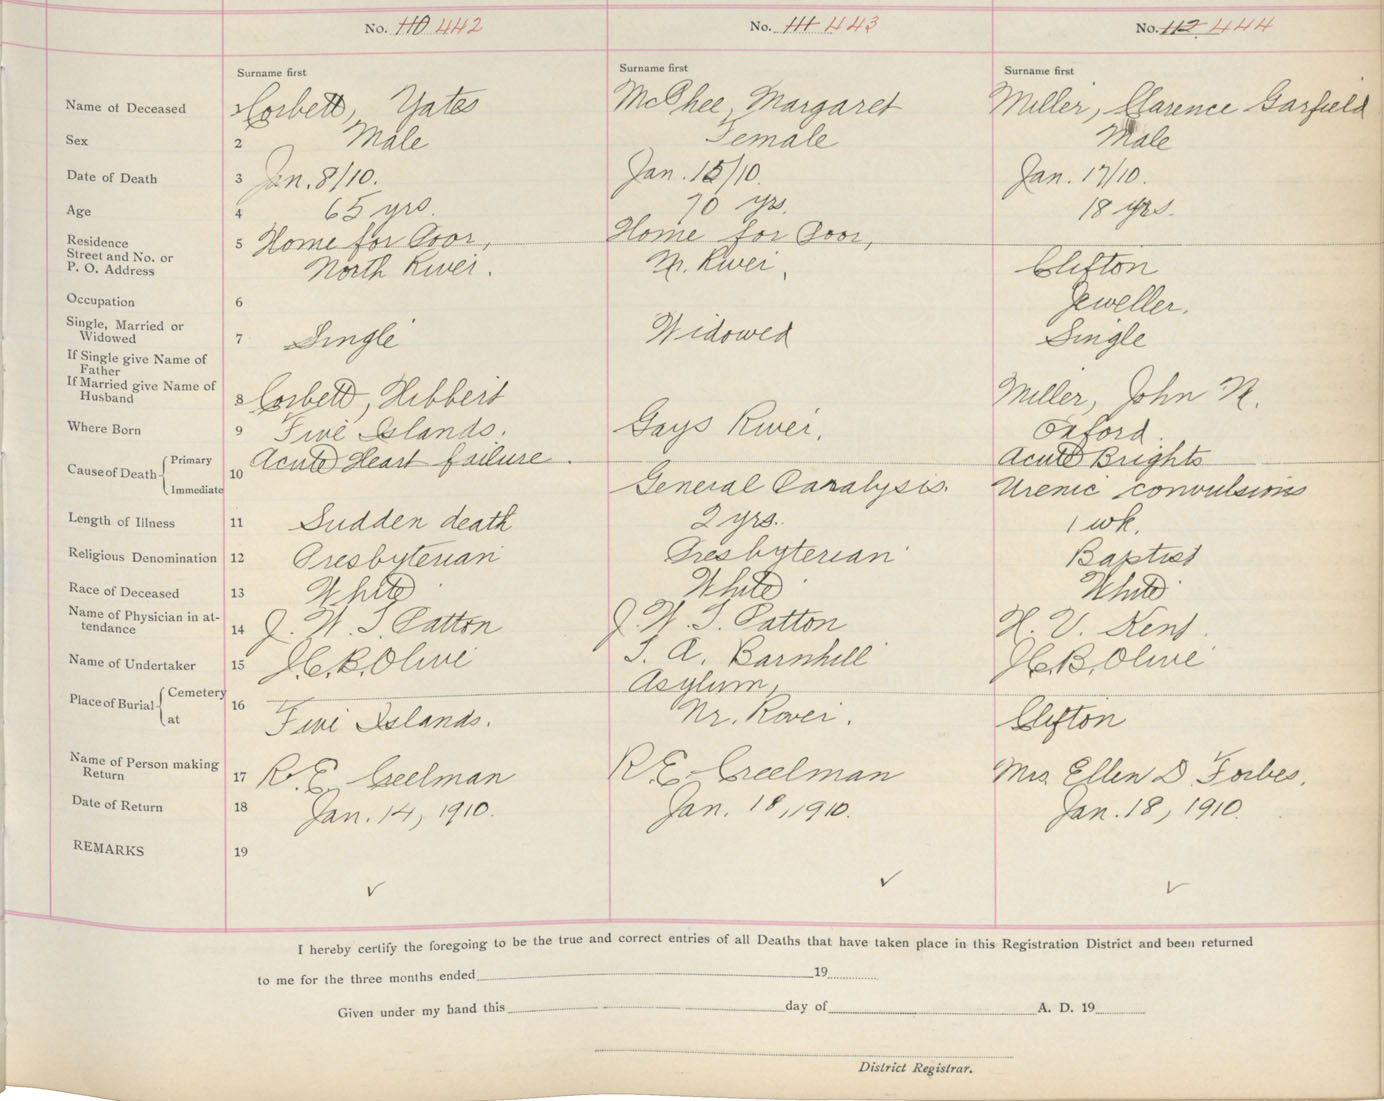 No. 110 442 No. 111 443 No. 112 444
Surname first Surname first Surname first
Name of Deceased 1 Corbett, Yates McPhee, Margaret Miller, Clarence Garfield
Sex 2 Male Female Male
Date of Death 3 Jan. 8/10. Jan. 15/10. Jan. 17/10.
Age 4 65 yrs. 70 yrs. 18 yrs.
Residence 5 Home for Poor, Home for Poor,
Street and No. or
P. O. Address North River. Nr. River, Clifton
Occupation 6 Jeweller.
Single, Married or
Widowed 7 Single Widowed Single
If Single give Name of
Father
If Married give Name of
Husband 8 Corbett, Hibbert Miller, John N.
Where Born 9 Five Islands. Gays River. Oxford.
Cause of Death Primary 10 Acute Heart failure. Acute Brights
Immediate General Paralysis. Urenic convulsions
Length of Illness 11 Sudden death 2 yrs. 1 wk.
Religious Denomination 12 Presbyterian Presbyterian Baptist
Race of Deceased 13 White White White
Name of Physician in at-
tendance 14 J. W. T. Patton J. W. T. Patton H. V. Kent.
Name of Undertaker 15 J.C.B. Olive T. A. Barnhill J.C.B. Olive
Place of Burial Cemetery 16 Asylum,
at Five Islands. Nr. River. Clifton
Name of Person making
Return 17 R. E. Creelman R. E. Creelman Mrs. Ellen D. Forbes.
Date of Return 18 Jan. 14, 1910. Jan. 18, 1910. Jan. 18, 1910.
REMARKS 19
✓ ✓ ✓
I hereby certify the foregoing to be the true and correct entries of all Deaths that have taken place in this Registration District and been returned
to me for the three months ended 19
Given under my hand this day of A. D. 19
District Registrar.